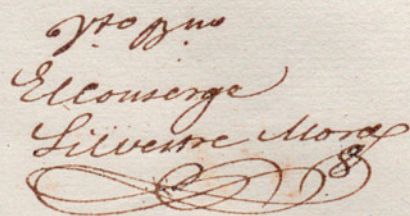 Vto Bno
El Conserge
Silvestre Mora